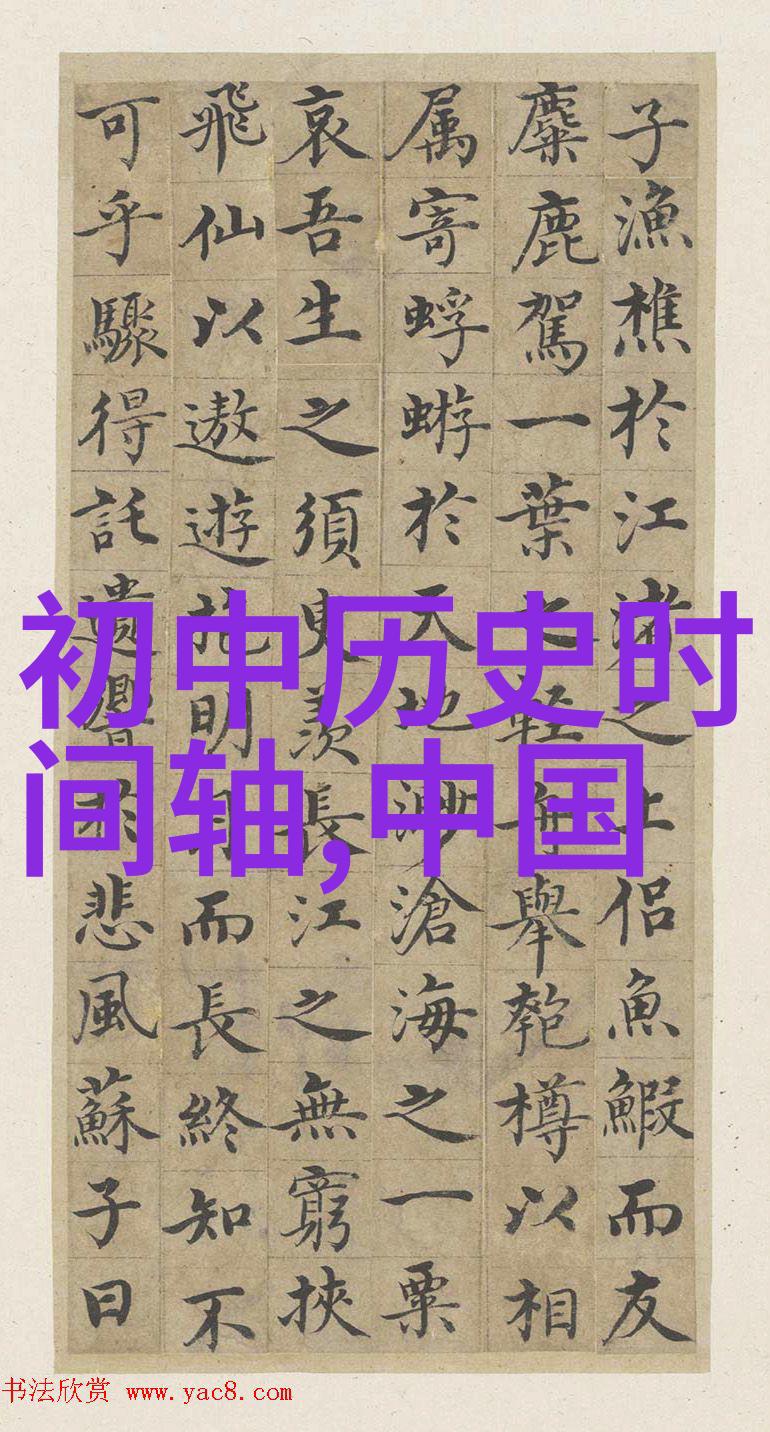 子漁樵於江渚之上侶魚鰕而友
麋鹿駕一葉之輕舟舉匏樽以相
属寄蜉蝣於天地渺滄海之一粟
哀吾生之須臾羨長江之無窮挾
飛仙以遨遊抱明月而長終知不
可乎驟得託遺響於悲風蘇子曰
初中历史时
间轴,中国
书法欣赏 www.yac8.com